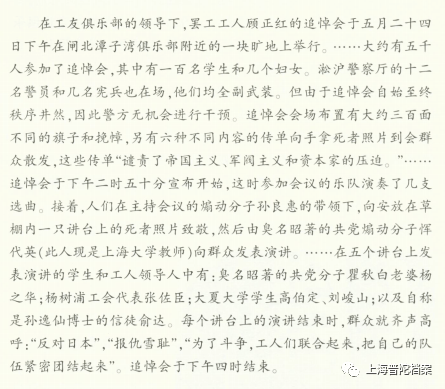 在工友俱乐部的领导下,罢工工人顾正红的追悼会于五月二十四
日下午在闸北潭子湾俱乐部附近的一块旷地上举行。……大约有五千
人参加了追悼会,其中有一百名学生和几个妇女。淞沪警察厅的十二
名警员和几名宪兵也在场,他们均全副武装。但由于追悼会自始至终
秩序井然,因此警方无机会进行干预。追悼会会场布置有大约三百面
不同的旗子和挽幛,另有六种不同内容的传单向手拿死者照片到会群
众散发,这些传单“谴责了帝国主义、军阀主义和资本家的压迫。”……
追悼会于下午二时五十分宣布开始,这时参加会议的乐队演奏了几支
选曲。接着,人们在主持会议的煽动分子孙良惠的带领下,向安放在草
棚内一只讲台上的死者照片致敬,然后由臭名昭著的共党煽动分子恽
代英(此人现是上海大学教师)向群众发表演讲。……在五个讲台上发
表演讲的学生和工人领导人中有:臭名昭著的共党分子瞿秋白老婆杨
之华;杨树浦工会代表张佐臣;大夏大学学生高伯定、刘峻山;以及自称
是孙逸仙博士的信徒俞达。每个讲台上的演讲结束时,群众就齐声高
呼:“反对日本”,“报仇雪耻”,“为了斗争,工人们联合起来,把自己的队
伍紧密团结起来”。追悼会于下午四时结束。
上海普陀档案